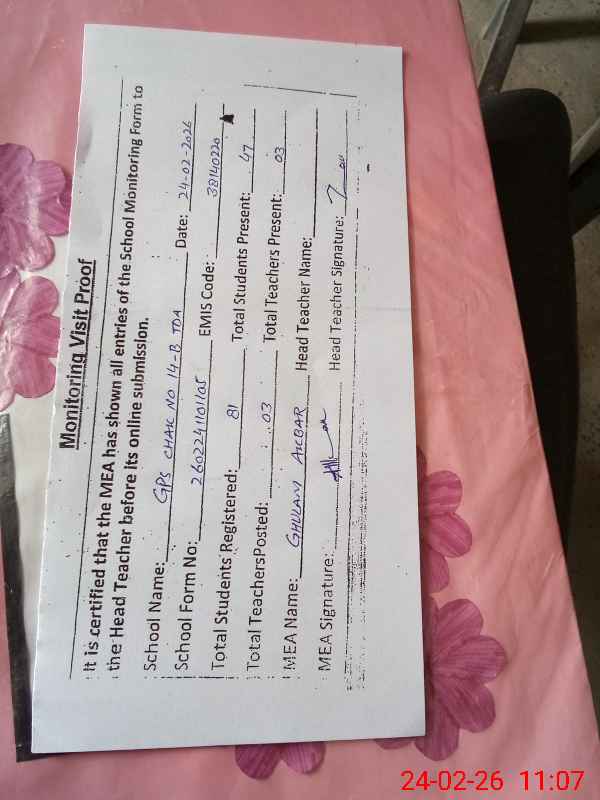 Monitoring Visit Proof
It is certified that the MEA has shown all entries of the School Monitoring Form to
the Head Teacher before its online submission.
School Name: GPS CHAK NO 14-B TDA Date: 24-02-2026
School Form No: 2602241101105 EMIS Code: 38140220
Total Students Registered: 81 Total Students Present: 47
Total TeachersPosted: 03 Total Teachers Present: 03
MEA Name: GHULAM AKBAR Head Teacher Name:
MEA Signature: Head Teacher Signature:
24-02-26 11:07